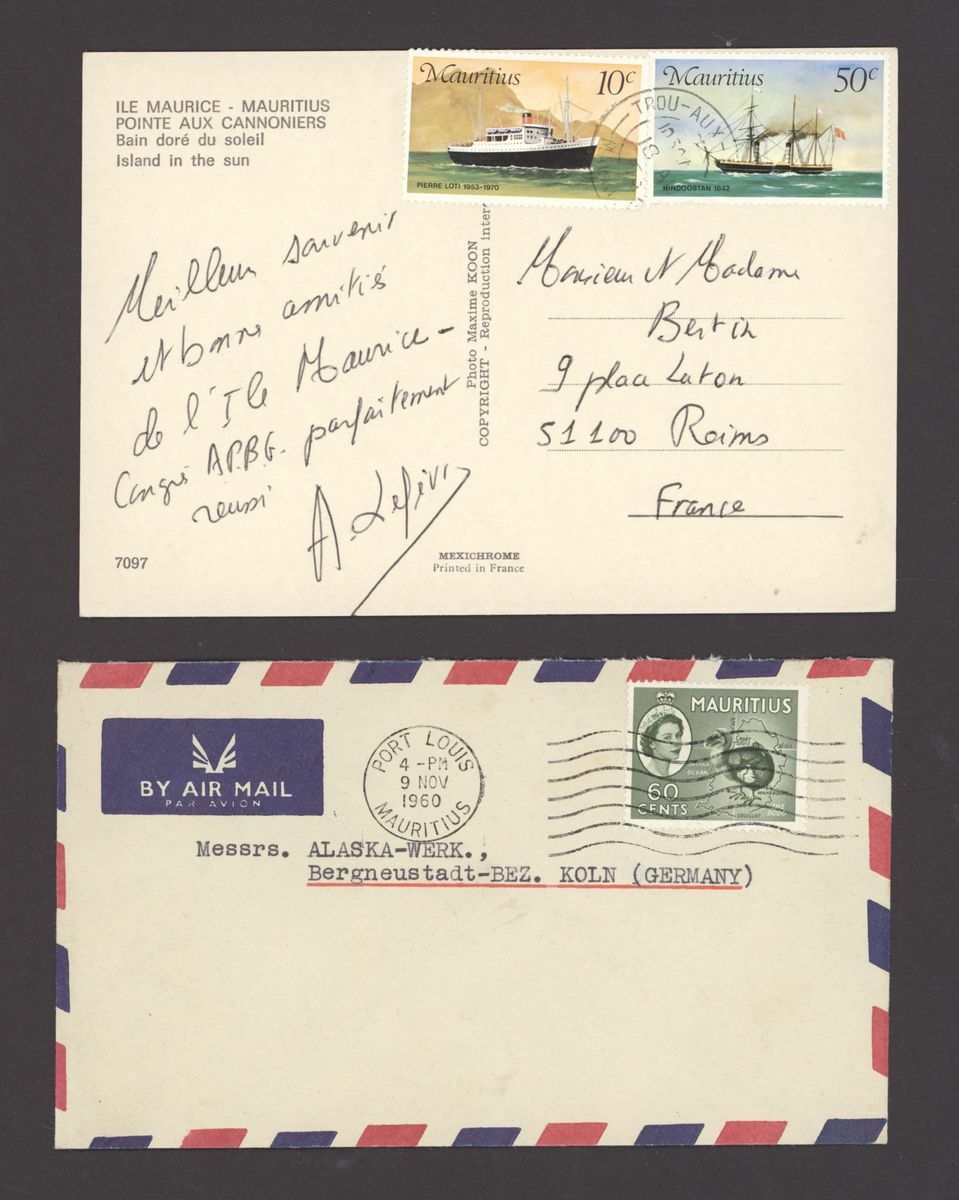 ILE MAURICE - MAURITIUS
POINTE AUX CANNONIERS
Bain doré du soleil
Island in the sun
Mauritius 10c
PIERRE LOTI 1953-1970
Mauritius 50c
HINDOOSTAN 1842
TROU-AUX-
Meilleur souvenir
et bonnes amitiés
de l'Ile Maurice-
Congrès A.P.B.G. parfaitement
réussi
A. Lefèvre
Photo Maxime KOON
COPYRIGHT - Reproduction inter
Monsieur et Madame
Bertin
9 place Luton
51100 Reims
France
7097
MEXICHROME
Printed in France
BY AIR MAIL
PAR AVION
PORT LOUIS
4 -PM
9 NOV
1960
MAURITIUS
MAURITIUS
INDIAN
OCEAN
PORT
LOUIS
MAHEBOURG
SOUILLAC
THE
DODO
60
CENTS
Messrs. ALASKA-WERK.,
Bergneustadt-BEZ. KOLN (GERMANY)